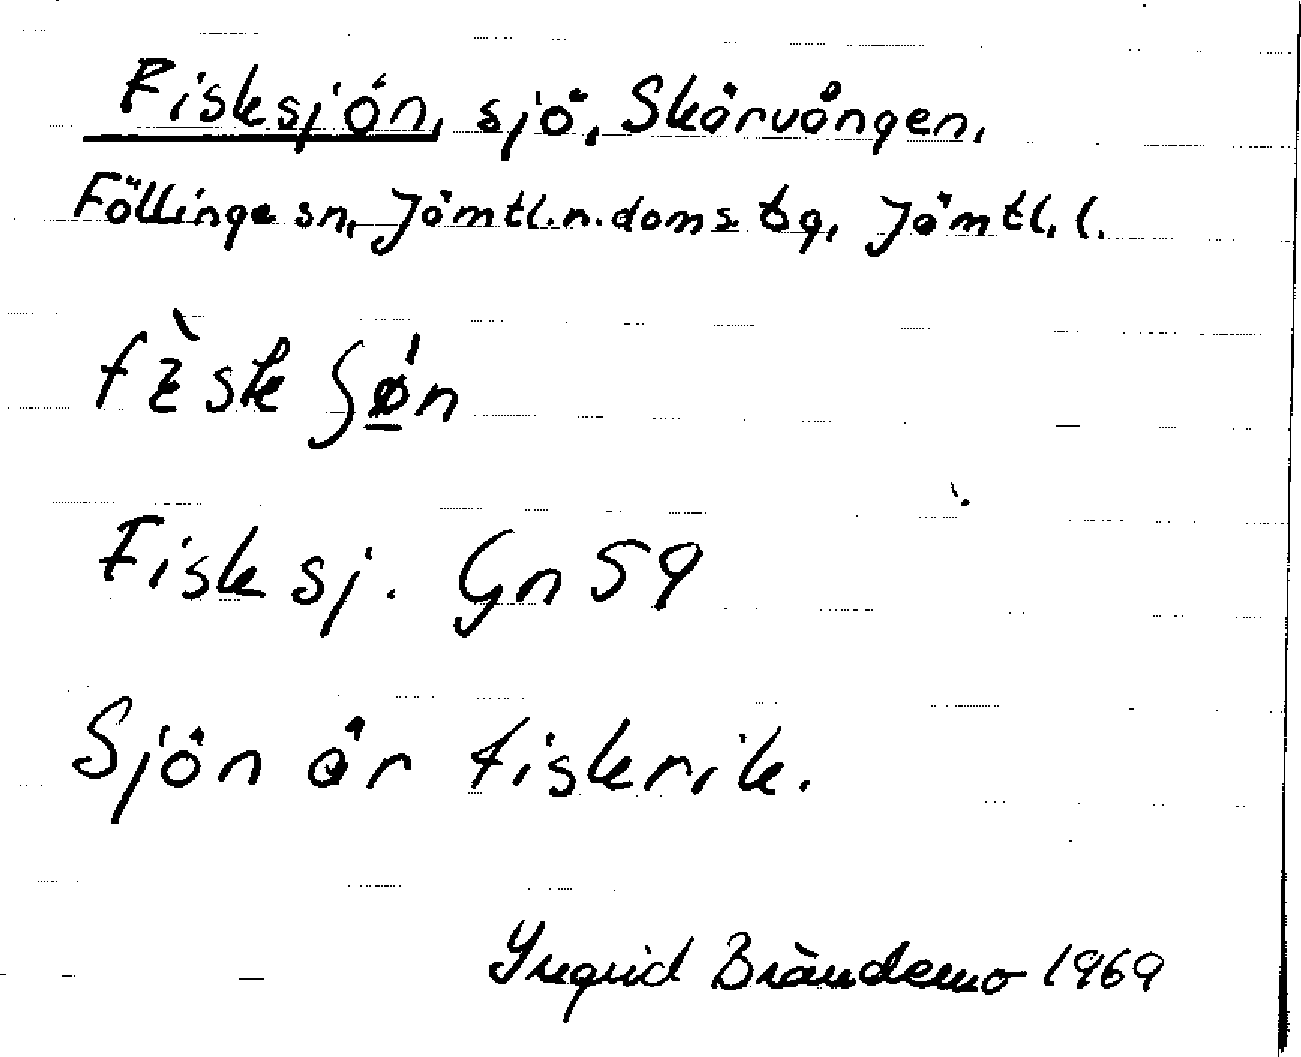 Fisksjön, sjö, Skärvången,
Föllinge sn, Jämtl. n. doms. tg, Jämtl. l.
Fisksj. Gn 59
Sjön är fiskrik.
Ingrid Brändemo 1969